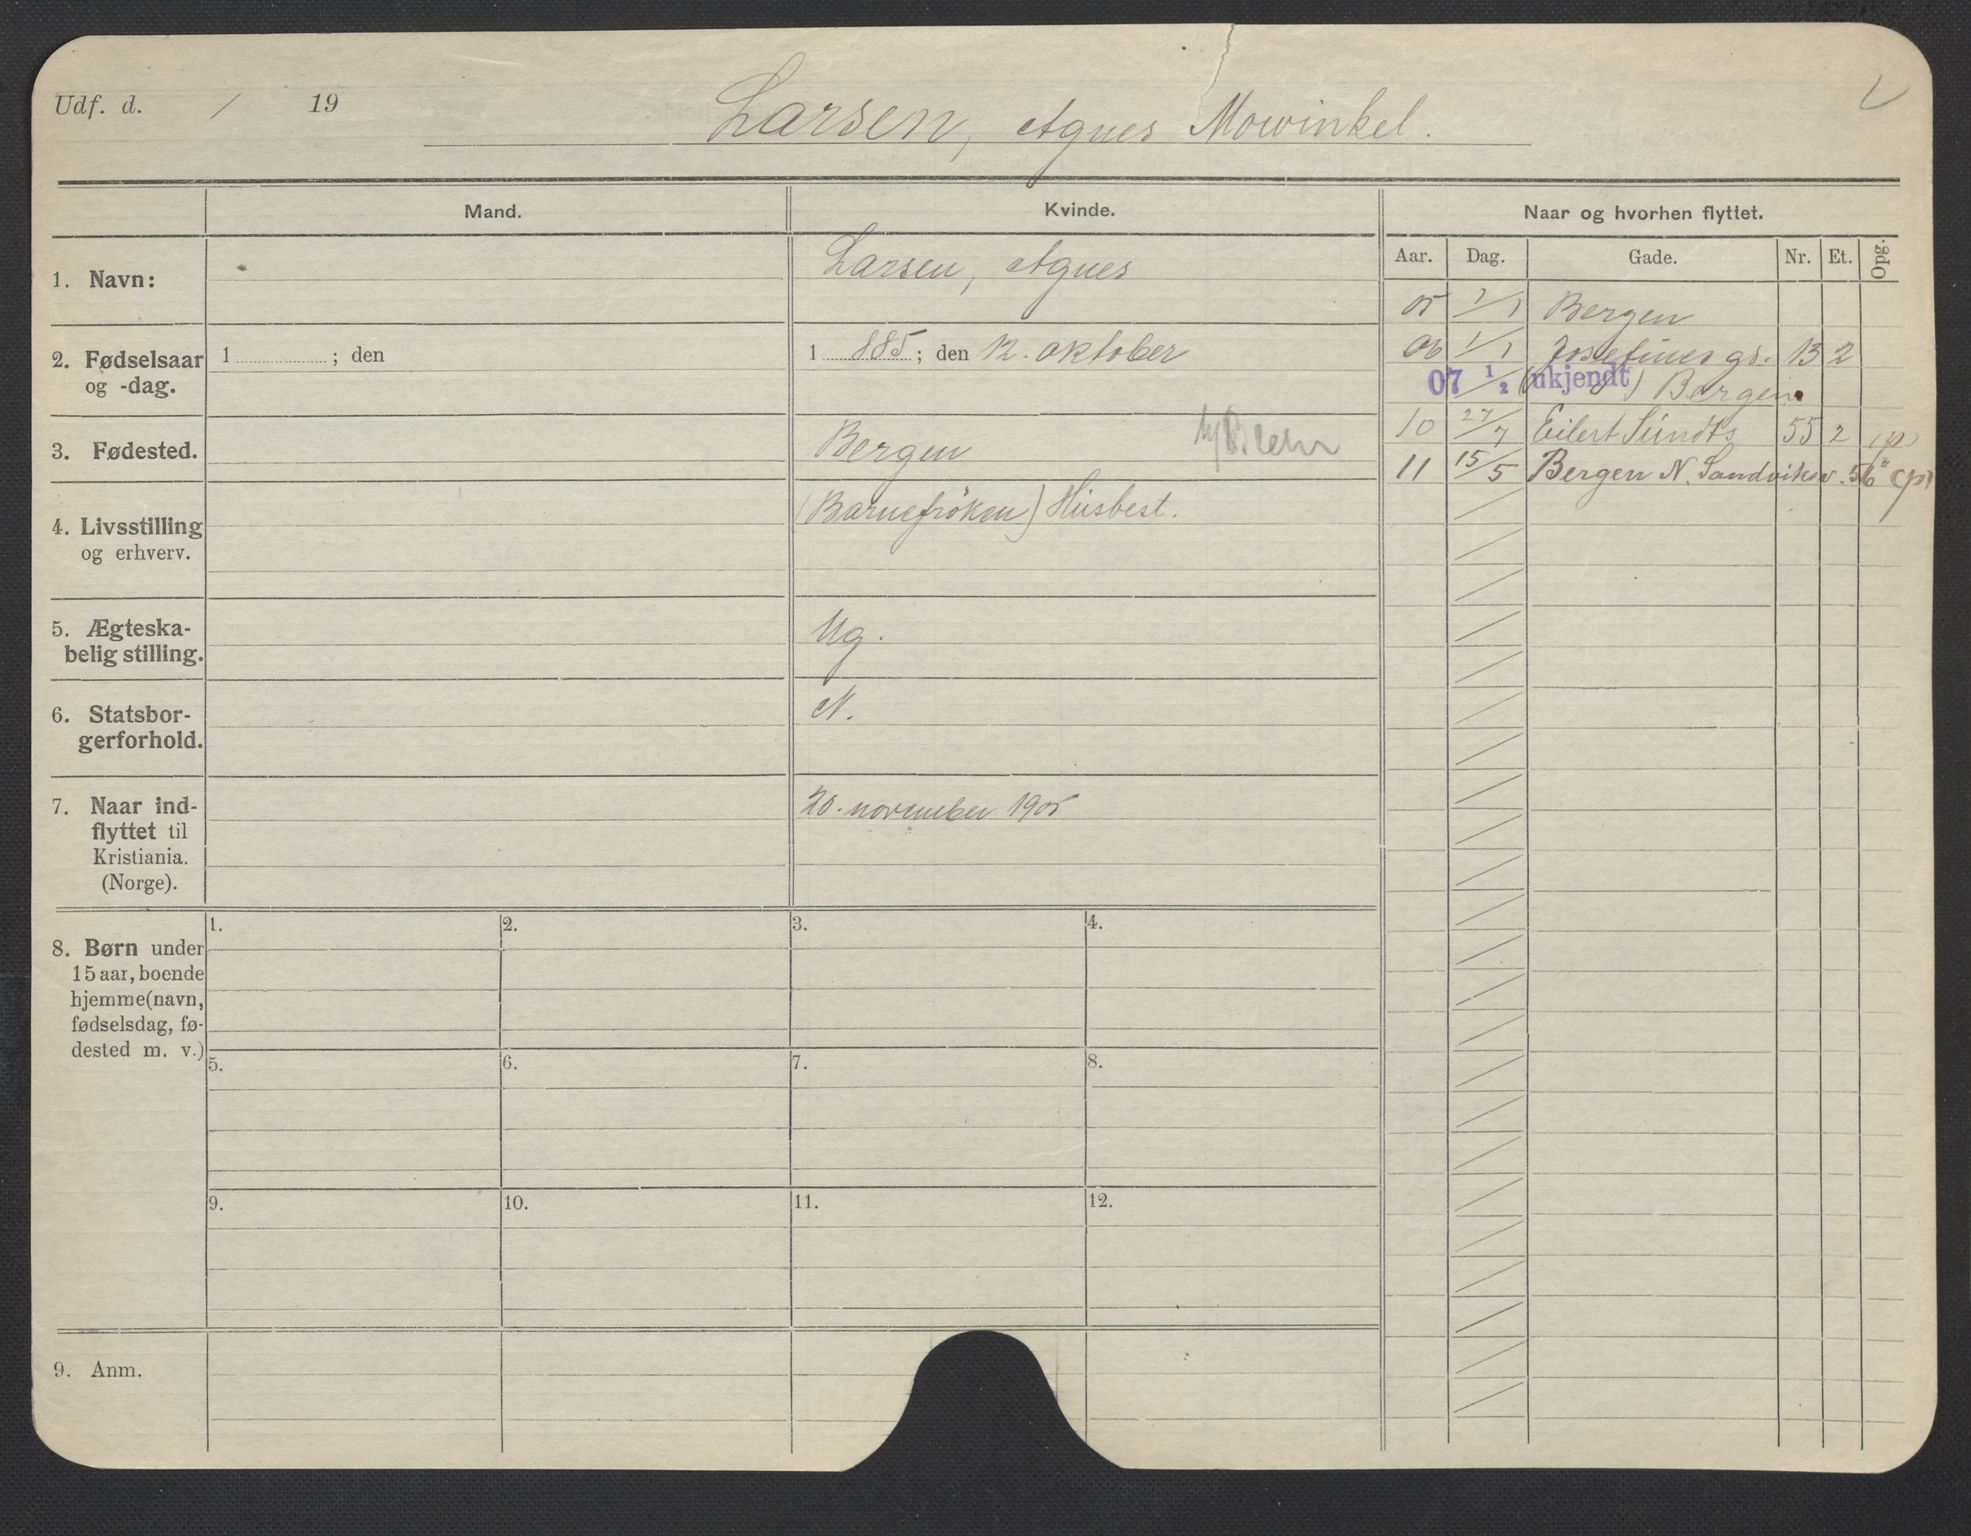 Udf. d. / 19
Larsen, Agnes Mowinkel.
Mand.
Kvinde.
Naar og hvorhen flyttet.
Aar. Dag. Gade. Nr. Et. Opg.
1. Navn:
Larsen, Agnes
2. Fødselsaar
og -dag.
1 ; den
1 885; den 12. oktober
3. Fødested.
Bergen
4. Livsstilling
og erhverv.
(Barnefrøken) Husbest.
5. Ægteska-
belig stilling.
Ug.
6. Statsbor-
gerforhold.
N.
7. Naar ind-
flyttet til
Kristiania.
(Norge).
20. november 1905
8. Børn under
15 aar, boende
hjemme (navn,
fødselsdag, fø-
dested m. v.)
1. 2. 3. 4.
5. 6. 7. 8.
9. 10. 11. 12.
9. Anm.
05 1/1 Bergen
06 1/1 Josefines gd. 13 2
07 1/2 (ukjendt) Bergen
10 27/7 Eilert Sundts 55 2 (p)
11 15/5 Bergen N. Sandviksv. 56 (p)